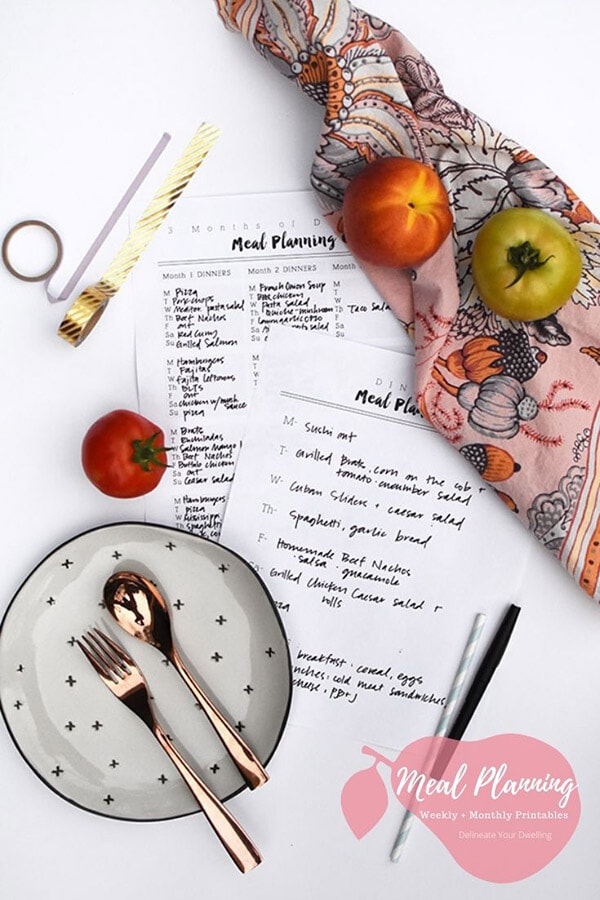 3 Months of D
Meal Planning
Month 1 DINNERS
M Pizza
T Pork chops
W Mediter. pasta salad
Th Beef Nachos
F out
Sa Red Curry
Su Grilled Salmon
M Hamburgers
T Fajitas
W Fajita leftovers
Th BLTs
F out
Sa chicken w/mush sauce
Su pizza
M Brats
T Enchiladas
W Salmon Mango
T Nachos
F Buffalo chicken
Sa out
S Caesar salad
M Hamburgers
T pizza
Th spaghetti
Month 2 DINNERS
M French Onion Soup
T BBQ chicken
W Pasta Salad
Th Quiche-mushroom
F out
Month
Taco Sala
DIN
Meal Pla
M- Sushi out
T- Grilled Brats, corn on the cob +
tomato-cucumber salad
W- Cuban Sliders + caesar salad
Th- Spaghetti, garlic bread
F- Homemade Beef Nachos
salsa guacamole
Sa- Grilled Chicken Caesar salad +
rolls
zza
breakfast: cereal, eggs
nches: cold meat sandwiches
cheese, PB+J
Meal Planning
Weekly + Monthly Printables
Delineate Your Dwelling